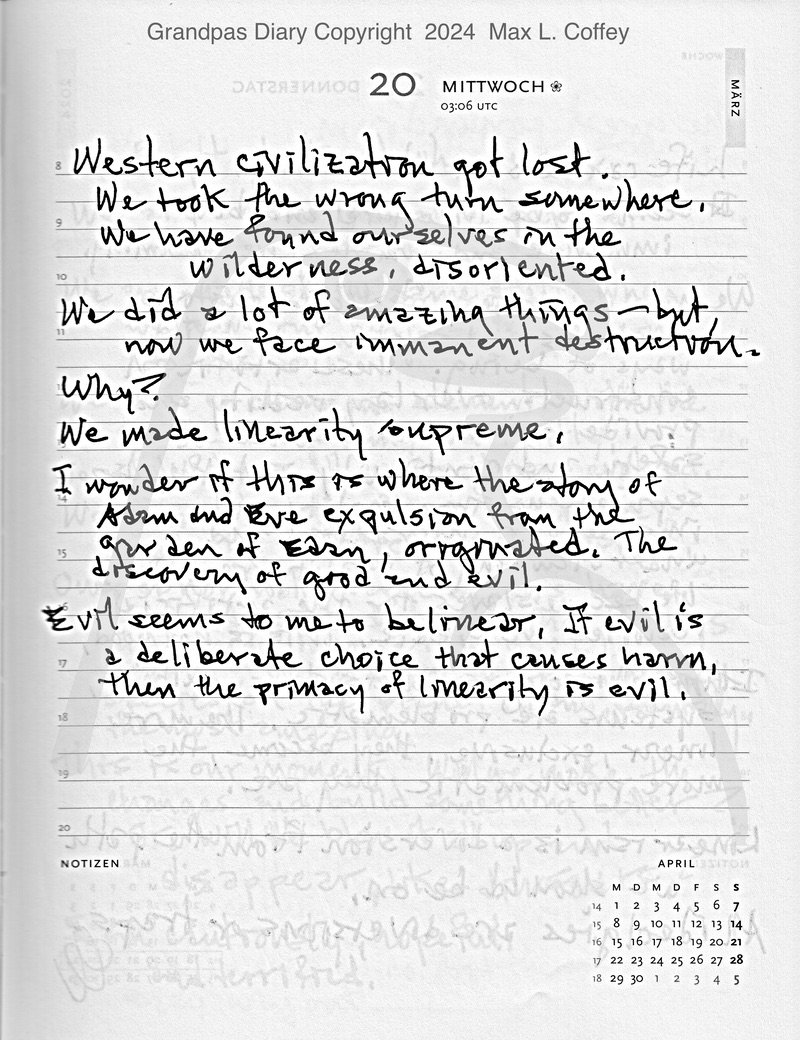 Grandpas Diary Copyright 2024 Max L. Coffey
20 MITTWOCH
03:06 UTC
MÄRZ
8 Western civilization got lost.
We took the wrong turn somewhere.
9 We have found ourselves in the
10 wilderness, disoriented.
We did a lot of amazing things — but,
11 now we face immanent destruction.
Why?
We made linearity supreme.
I wonder if this is where the story of
14 Adam and Eve expulsion from the
15 garden of Eden, originated. The
discovery of good and evil.
Evil seems to me to be linear. If evil is
17 a deliberate choice that causes harm,
then the primacy of linearity is evil.
18
19
20
NOTIZEN
APRIL
M D M D F S S
14 1 2 3 4 5 6 7
15 8 9 10 11 12 13 14
16 15 16 17 18 19 20 21
17 22 23 24 25 26 27 28
18 29 30 1 2 3 4 5